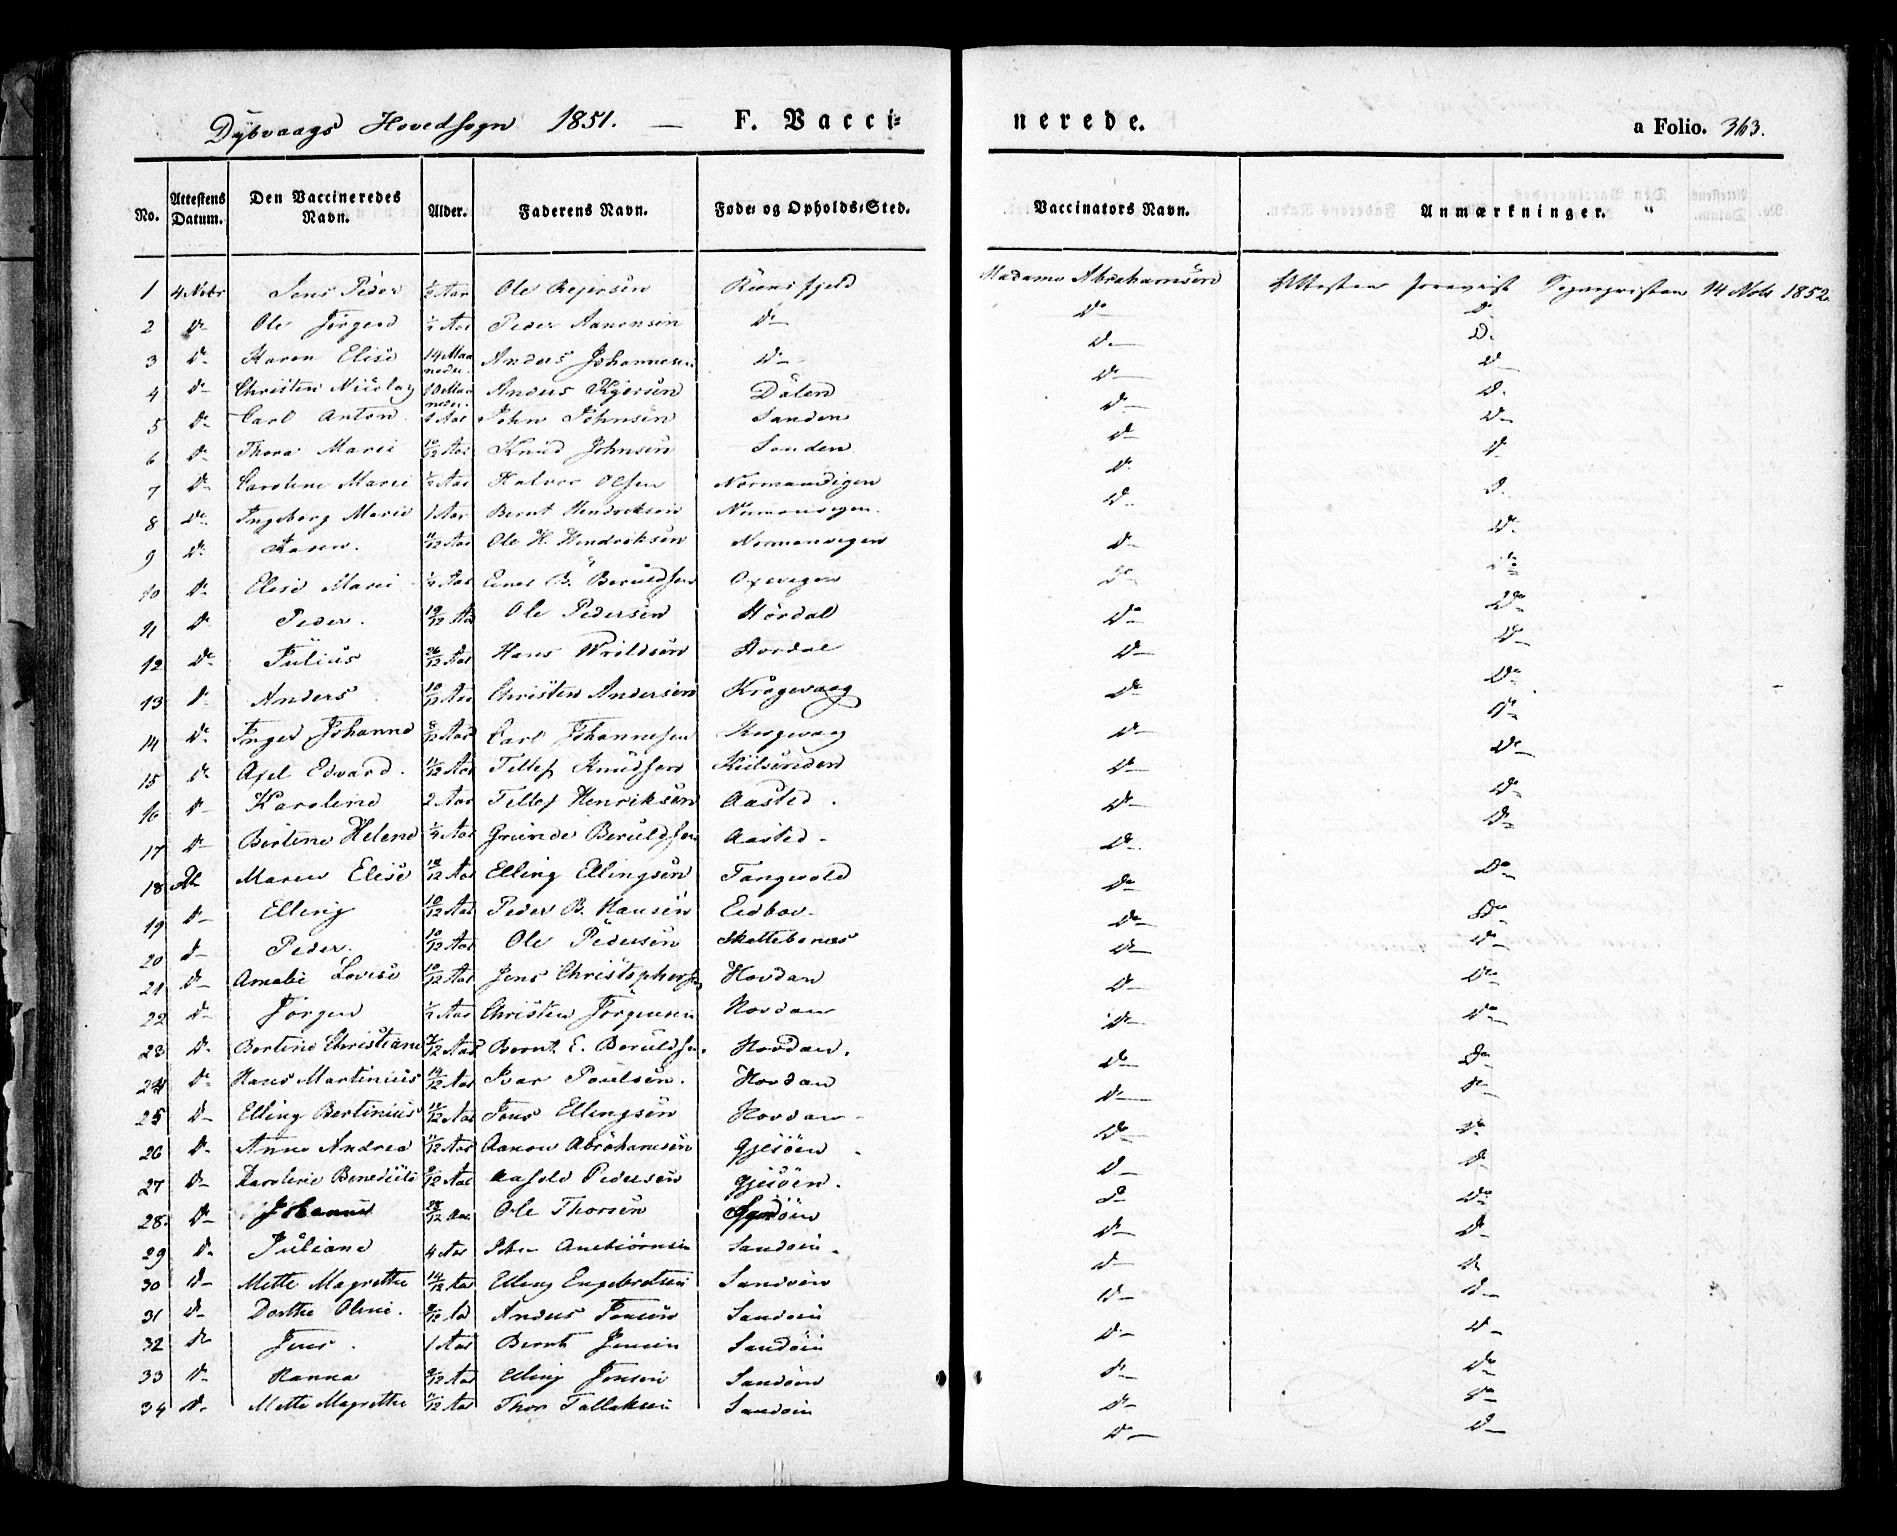 Dybvaags Hovedsogn 1851. — F. Vacci=nerede. a Folio. 363.
No. Attestens Datum. Den Vaccineredes Navn. Alder. Faderens Navn. Føde= og Opholds=Sted. Vaccinators Navn. Anmærkninger.
1 4 Nobr Jens Peder ½ Aar Ole Rejersen Madame Abrahamsen Attesten 14 Nobr 1852.
2 Do Ole Jørgen Aar Peder Aanonsen Do Do Do
3 Do Karen Elise 14 Maaneder Anders Johannesen Do Do Do
4 Do Christen Nicolay 10 Maaneder Anders Dalen Do Do
5 Do Carl Anton Aar John Johnsen Sanden Do Do
6 Do Thora Marie 10/12 Aar Knud Johnsen Sanden Do Do
7 Do Caroline Marie ½ Aar Halvor Olsen Normandvigen Do Do
8 Do Ingeborg Marie 1 Aar Bernt Hendriksen Normanvigen. Do Do
9 Do Kasen. 11/12 Aar Ole H. Hendriksen Normanvigen Do Do
10 Do Elise Marie ½ Aar B. Beruldsen Oxevigen Do Do
11 Do Peder. 19/12 Aar Ole Pedersen Hördal Do Do
12 Do Julius 26/12 Aar Hans Hördal Do Do
13 Do Anders 10/12 Aar Christen Andersen Krogevaag Do Do
14 Do Inger Johanne 8/12 Aar Carl Johannesen Krogevaag Do Do
15 Do Axel Edvard. 11/12 Aar Tellef Knudsen Do Do
16 Do Karoline 2 Aar Tellef Henriksen Aasted. Do Do
17 Do Bertine Helene ¼ Aar Gunde Beruldsen Aasted Do Do
18 Maren Elise 18/12 Aar Elling Ellingsen Tangvold Do Do
19 Do Elling 10/12 Aar Peder B. Hansen Eidbo Do Do
20 Do Peder. 10/12 Aar Ole Pedersen Skottebonæs Do Do
21 Do Amalie Lovise 10/12 Aar Jens Christophersen Hovdan Do Do
22 Do Jörgen ½ Aar Christen Jörgensen Hovdan Do Do
23 Do Bertine Christiane /12 Aar Bernt E. Beruldsen. Hovdan. Do Do
24 Do Hans Martinius 14/12 Aar Ivar Poulsen. Hovdan Do Do
25 Do Elling Bertinius 11/12 Aar Jens Ellingsen Hovdan Do Do
26 Do Anne Andrea 11/12 Aar Aanon Abrahamsen Gjesöen Do Do
27 Do Karoline Benedicte 9/12 Aar Pedersen Gjesöen. Do Do
28. Do Johanne 28/12 Aar Ole Thorsen Do Do
29 Do Juliane 4 Aar Sandöen Do Do
30 Do Mette Magrethe 14/12 Aar Elling Engebretsen Sandöen Do Do
31 Do Dorthe Oline. 9/12 Anders Jensen Sandöen Do Do
32 Do Jens. 1 Aar Bernt Jensen Sandöen Do Do
33 Do Hanna 9/12 Aar Elling Jensen Sandöen Do Do
34 Do Mette Magrethe 11/12 Aar Thor Tallaksen Sandöen Do Do
Do